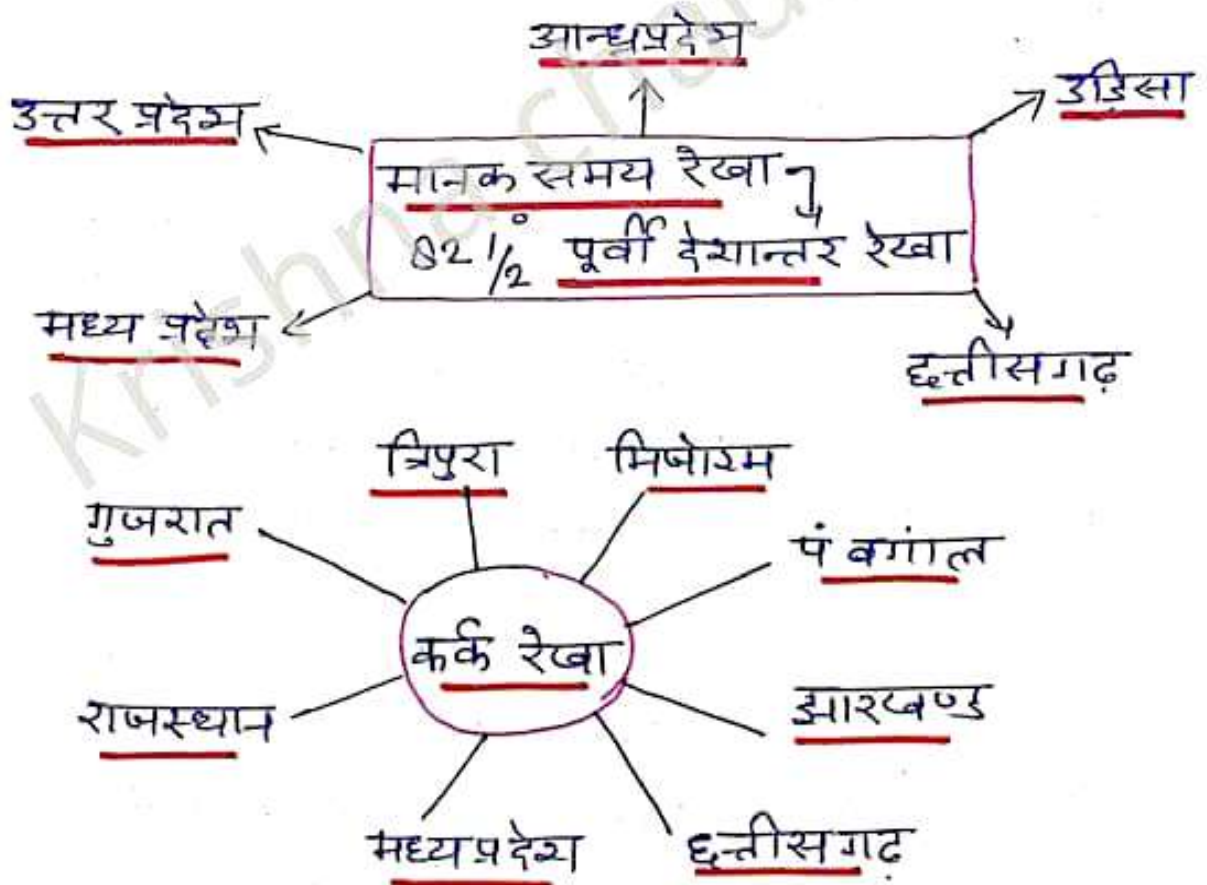 आन्ध्रप्रदेश
उत्तर प्रदेश
उड़िसा
मानक समय रेखा
82 1/2° पूर्वी देशान्तर रेखा
मध्य प्रदेश
छत्तीसगढ़
त्रिपुरा
मिजोरम
गुजरात
पं बगांल
कर्क रेखा
राजस्थान
झारखण्ड
मध्यप्रदेश
छत्तीसगढ़